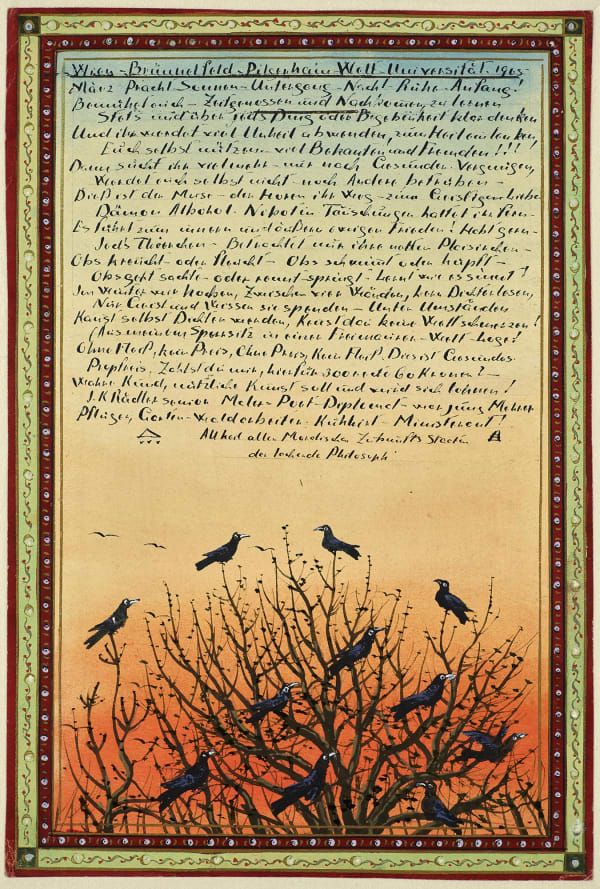 Wien - Brünnelfeld - Pilgerhain - Welt - Universität. 1965
März Pracht Sonnen - Untergang - Nacht - Ruhe - Anfang!
Zeitgenossen und zu lernen
Stets und über jedes Ding oder Begebenheit klar denken
Und ihr werdet viel Unheil abwenden, zum Heil
Euch selbst nützen - viel Bekannten und Fremden!!!!
Dann sucht ihr vielmehr - nur noch Gesundes - Vergnügen,
Werdet euch selbst nicht - noch Andere betrüben -
Dies ist der Muse - der Horen ihr Weg - zum Geistigen - Liebe
Dämon Alkohol - Nikotin Täuschungen haltet ihr fern -
Es führt zum innern und äußern ewigen Frieden! Habt gern -
Jeds Tierchen - Betrachtet nur ihre netten Pläsierchen -
Obs kriecht - oder fleucht - Obs schwimmt oder hüpft -
Obs geht sachte - oder rennt - springt - Lernt wie es singt!
Im Winter vier Wänden, kann Dichter lesen,
Nur Geist und Wissen sie spenden - Unter Umständen
Kanst selbst Dichter werden, Kenst dan keine Weltschmerzen!
(Aus meinem Sperrsitz in einer Welt - Loge!
Ohne Fleiß, kein Preis, Ohne Preis, Kein Fleiß. Dies ist Gesundes
Prophezeis, Zahlst du mir, hierfür 300 oder 60 Kronen? -
Wahre Kunst, nützliche Kunst soll und wird sich lohnen!
J. K. Rädler senior Maler - Poet - Diplomat - war jung Mehrer
Pflüger, Garten - Waldarbeiter - Kuhhirt - Ministerent!
aller Zukunfts Staaten
der lachende Philosoph